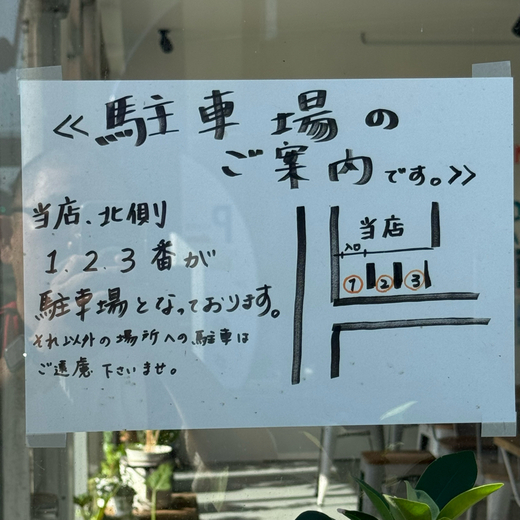 ≪駐車場の
ご案内です。≫
当店、北側
1.2.3番が
駐車場となっております。
それ以外の場所への駐車は
ご遠慮下さいませ。
当店
入口
① ② ③